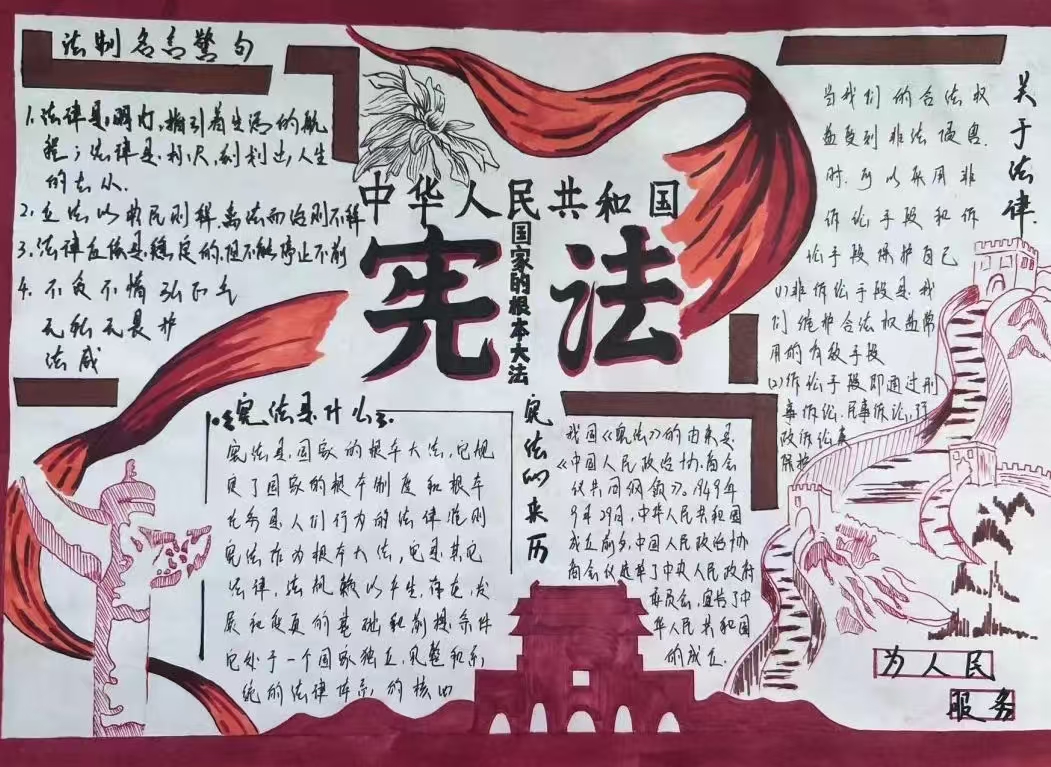 法制名言警句
1.法律是明灯,指引着生活的航
程;法律是利尺,刻划出人生
的去从
2.立法以典民则祥,离法而治则不祥
3.法律应该是稳定的,但不能停止不前
4.不贪不惰弘正气
无私无畏护
法威
中华人民共和国
宪法
国家的根本大法
宪法是什么
宪法是国家的根本大法,它规
定了国家的根本制度和根本
任务是人们行为的法律准则
宪法作为根本大法,它是其它
法律,法规赖以产生,存在,发
展和变更的基础和前提条件
它处于一个国家独立,完整和系
统的法律体系,的核心
宪法的来历
我国《宪法》的由来是
《中国人民政治协商会
议共同纲领》。1949年
9月29日,中华人民共和国
成立前夕,中国人民政治协
商会议选举了中央人民政府
委员会,宣告了中
华人民共和国
的成立.
关于法律
当我们的合法权
益受到非法侵害.
时.可以采用非
诉讼手段和诉
讼手段保护自己
(1)非诉讼手段是我
们维护合法权益常
用的有效手段
(2)诉讼手段即通过刑
事诉讼.民事诉讼,行
政诉讼来
保护
为人民
服务